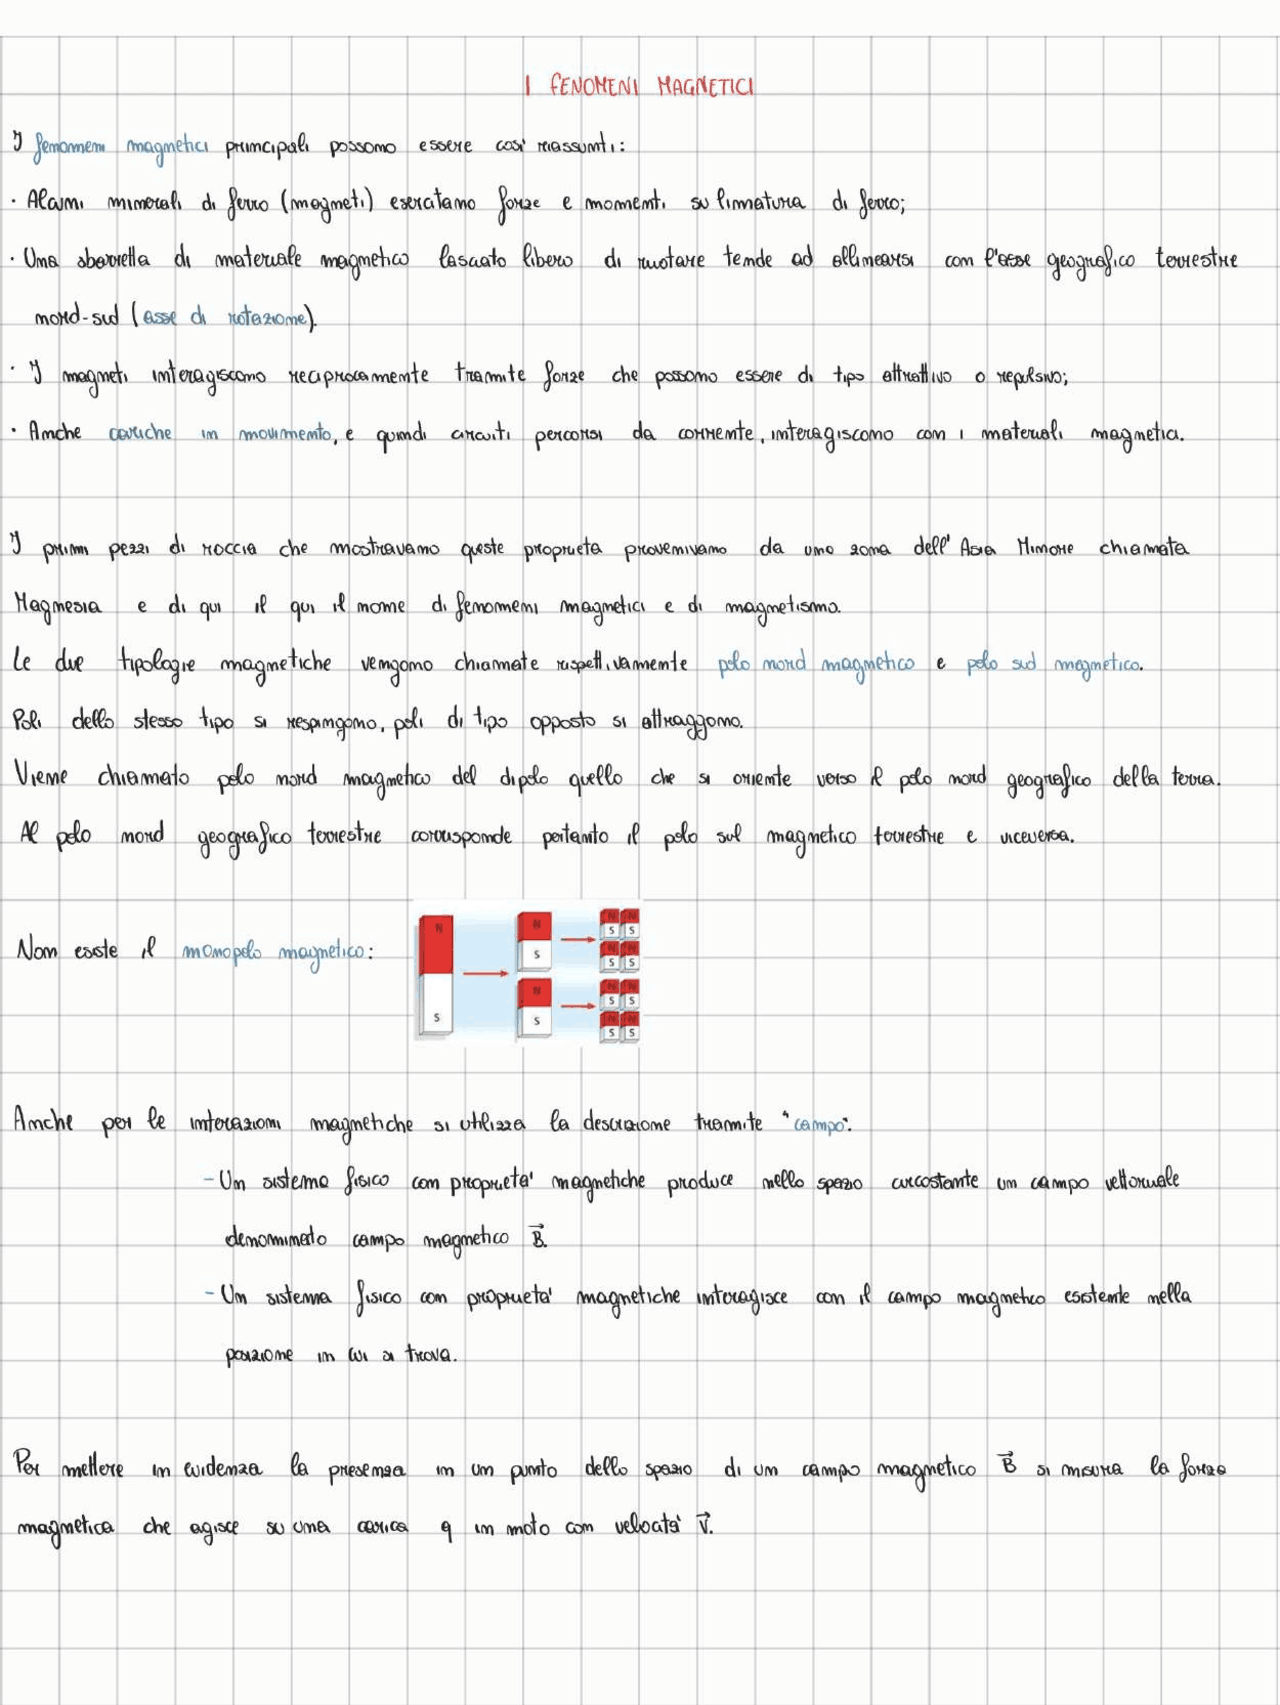 I FENOMENI MAGNETICI
I fenomeni magnetici principali possono essere così riassunti:
· Alcuni minerali di ferro (magneti) esercitano forze e momenti su limatura di ferro;
· Una sbarretta di materiale magnetico lasciato libero di ruotare tende ad allinearsi con l'asse geografico terrestre
nord-sud (asse di rotazione).
· I magneti interagiscono reciprocamente tramite forze che possono essere di tipo attrattivo o repulsivo;
· Anche cariche in movimento, e quindi circuiti percorsi da corrente, interagiscono con i materiali magnetici.
I primi pezzi di roccia che mostravano queste proprietà provenivano da una zona dell'Asia Minore chiamata
Magnesia e di qui il qui il nome di fenomeni magnetici e di magnetismo.
Le due tipologie magnetiche vengono chiamate rispettivamente polo nord magnetico e polo sud magnetico.
Poli dello stesso tipo si respingono, poli di tipo opposto si attraggono.
Viene chiamato polo nord magnetico del dipolo quello che si oriente verso il polo nord geografico della terra.
Al polo nord geografico terrestre corrisponde pertanto il polo sul magnetico terrestre e viceversa.
N N N N
S S
S
N N
S S
Non esiste il monopolo magnetico:
N N N
S S
S S N N
S S
Anche per le interazioni magnetiche si utilizza la descrizione tramite "campo":
- Un sistema fisico con proprietà magnetiche produce nello spazio circostante un campo vettoriale
denominato campo magnetico B⃗.
- Un sistema fisico con proprietà magnetiche interagisce con il campo magnetico esistente nella
posizione in cui si trova.
Per mettere in evidenza la presenza in un punto dello spazio di un campo magnetico B⃗ si misura la forza
magnetica che agisce su una carica q in moto con velocità v⃗.